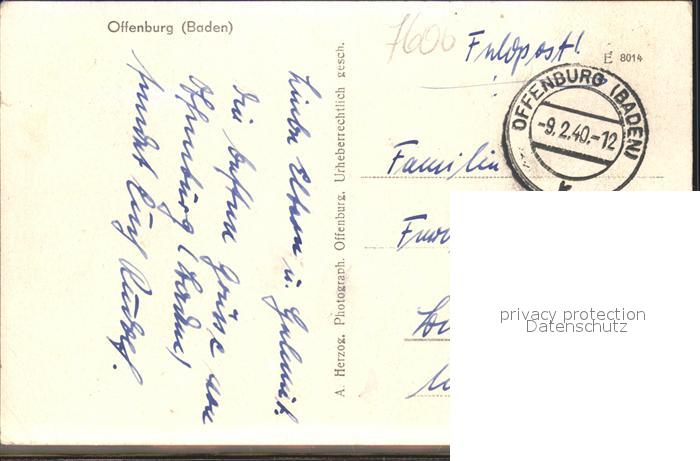 Offenburg (Baden)
7606
Feldpost!
E 8014
OFFENBURG (BADEN)
-9.2.40.-12
k
Liebe Eltern u. Helmut.
Die besten Grüsse von
Offenburg (Baden)
sendet Euch Rudolf.
A. Herzog, Photograph. Offenburg. Urheberrechtlich gesch.
Familie
privacy protection
Datenschutz